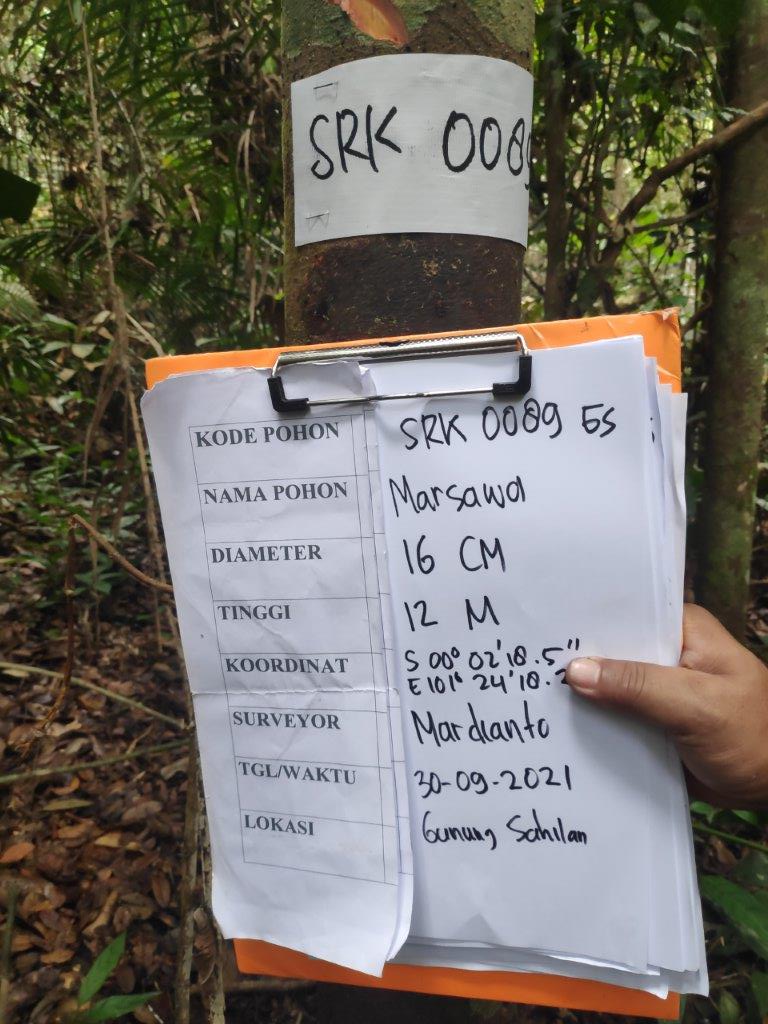 SRK 0089
KODE POHON SRK 0089 GS
NAMA POHON Marsawa
DIAMETER 16 CM
TINGGI 12 M
KOORDINAT S 00° 02'18.5"
E 101° 24'18.
SURVEYOR Mardianto
TGL/WAKTU 30-09-2021
LOKASI Gunung Sahilan